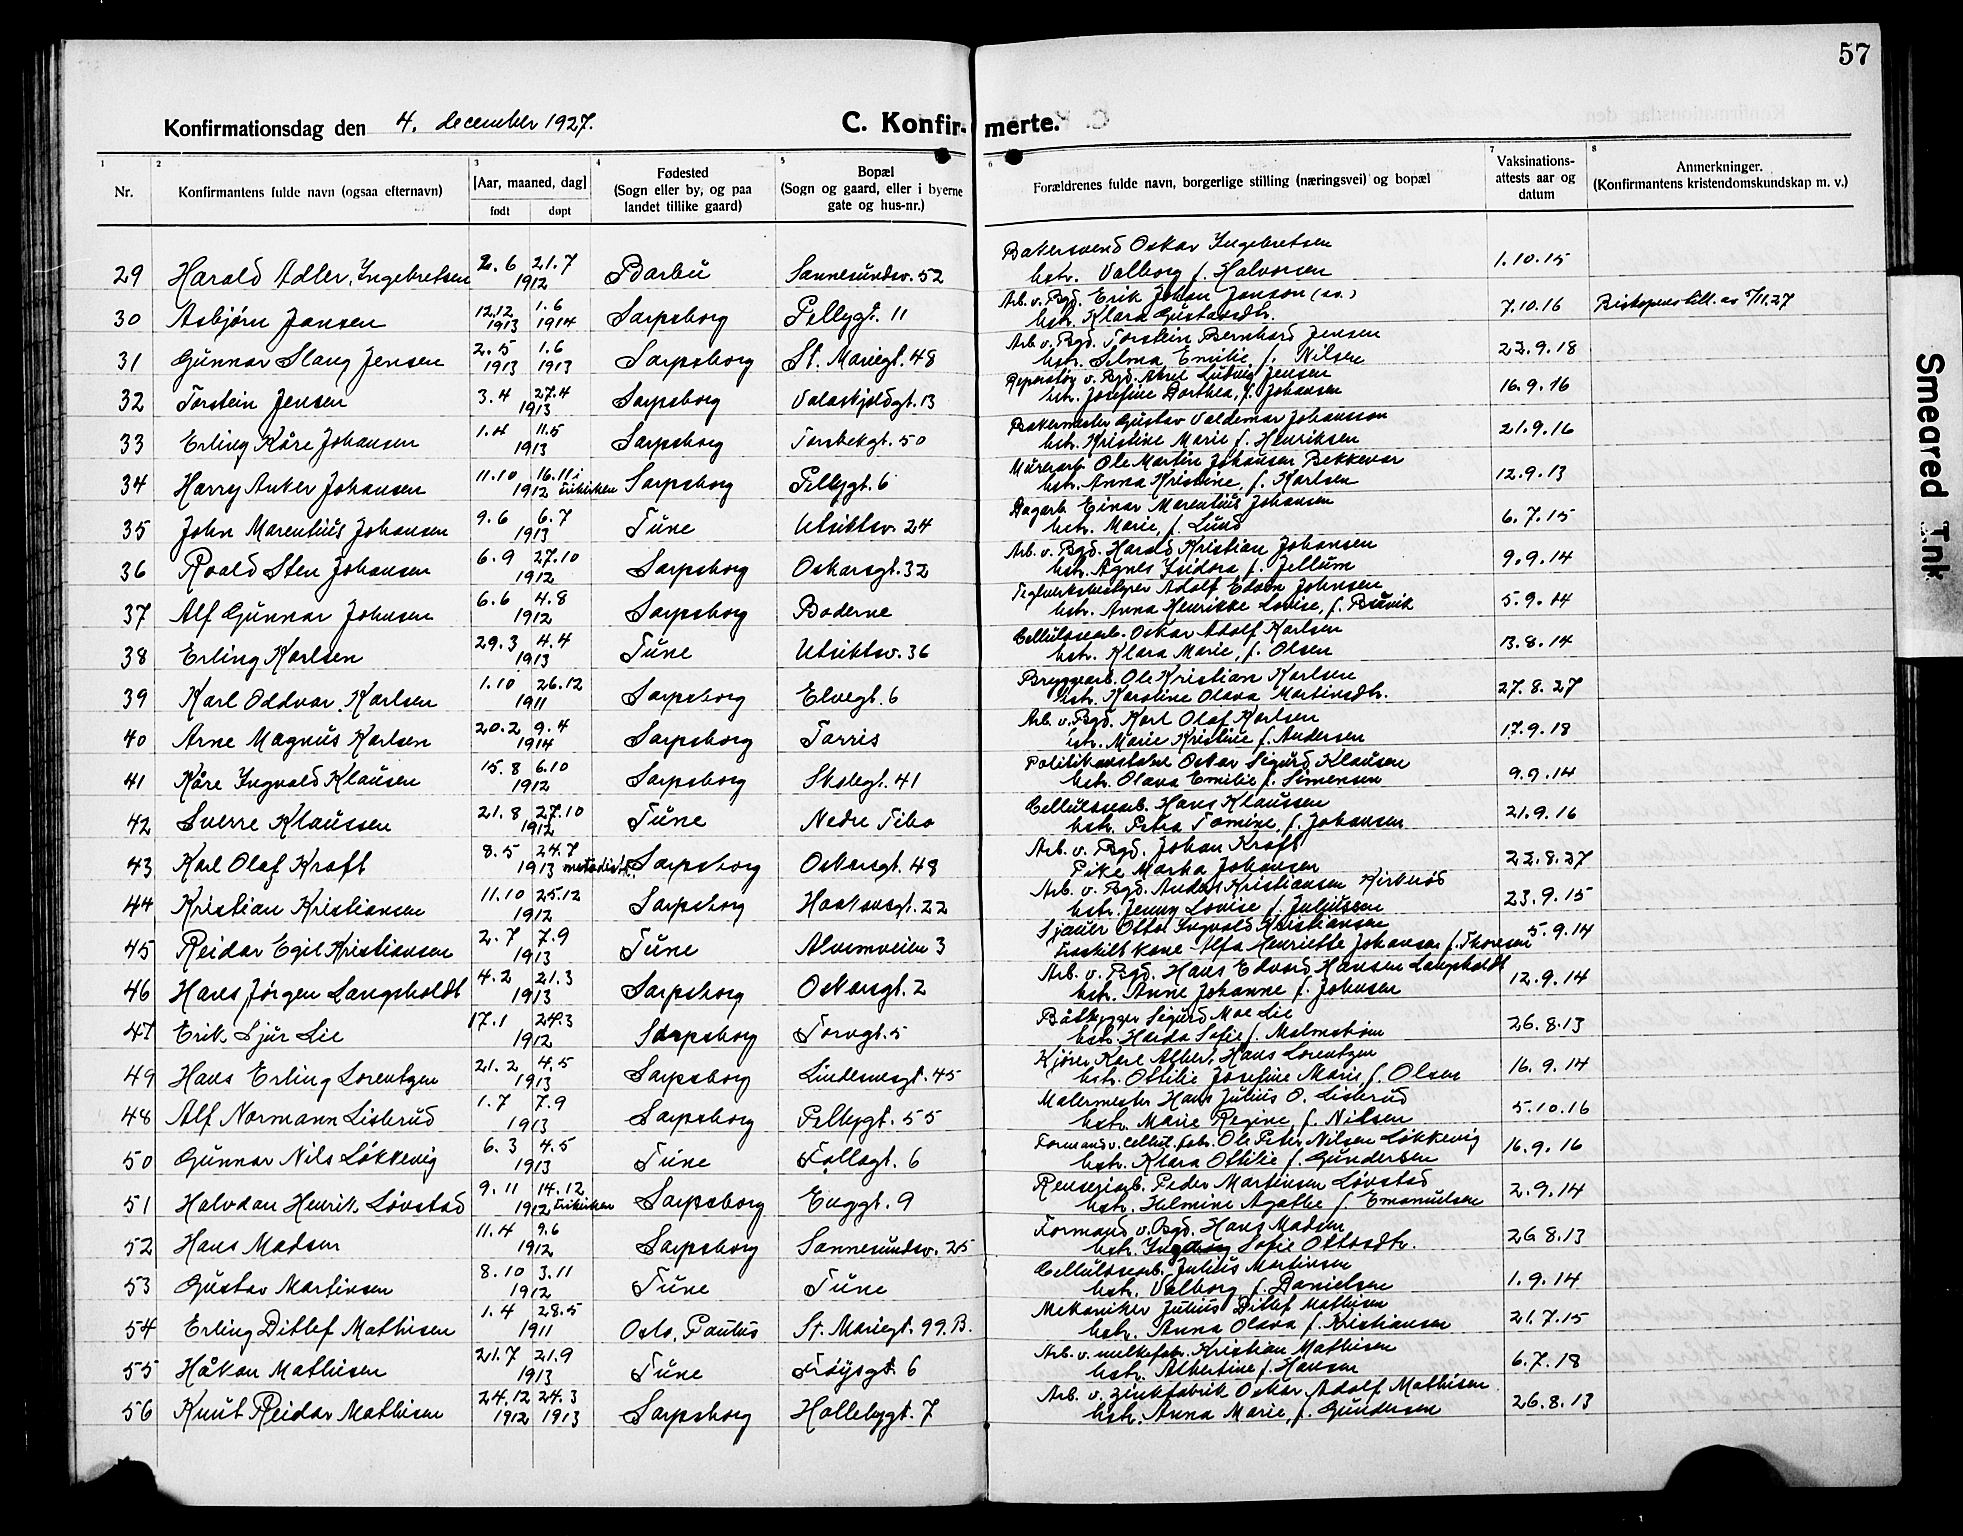 57
Konfirmationsdag den 4. december 1927. C. Konfirmerte.
1 2 3 4 5 6 7 8
Nr. Konfirmantens fulde navn (ogsaa efternavn) [Aar, maaned, dag] født døpt Fødested (Sogn eller by, og paa landet tillike gaard) Bopæl (Sogn og gaard, eller i byerne gate og hus-nr.) Forældrenes fulde navn, borgerlige stilling (næringsvei) og bopæl Vaksinations-attests aar og datum Anmerkninger. (Konfirmantens kristendomskundskap m. v.)
29 Harald Adler Ingebretsen 2.6 21.7 1912 Barbu Sannesundsv. 52 Bakersvend Oskar Ingebretsen 1.10.15
hstr. Valborg f. Halvorsen
30 Asbjørn Jansen 12.12 1913 1.6 1914 Sarpsborg Pellygt. 11 Arb. v. Bgd. Erik Johan Janson (sv.) 7.10.16 Bispens till. av 5/11.27
hstr. Klara Gustavsdtr.
31 Gunnar Slang Jensen 2.5 1913 1.6 1913 Sarpsborg St. Mariegt. 48 Arb v. Bgd. Torstein Bernhard Jensen 22.9.18
hstr. Selma Emilie f. Nilsen
32 Torstein Jensen 3.4 27.4 1913 Sarpsborg Valaskjoldgt. 13 v. Bgd. Aksel Ludvig Jensen 16.9.16
hstr. Josefine Dorthea, f. Johansen
33 Erling Kåre Johansen 1.4 11.5 1913 Sarpsborg Torsbekgt. 50 Bakermester Gustav Valdemar Johansson 21.9.16
hstr. Kristine Marie f. Henriksen
34 Harry Anker Johansen 11.10 16.11 i 1912 frikirken Sarpsborg Pellygt. 6 Murerarb. Ole Martin Johansen Bekkevar 12.9.13
hstr. Anna Kristine, f. Karlsen
35 John Marentius Johansen 9.6 6.7 1913 Tune Utsiktsv. 24 Dagarb. Einar Marentius Johansen 6.7.15
hstr. Marie, f. Lund
36 Roald Sten Johansen 6.9 27.10 1912 Sarpsborg Oskarsgt. 32 Arb. v. Bgd. Harald Kristian Johansen 9.9.14
hstr. Agnes Isidora f. Jellum
37 Alf Gunnar Johnsen 6.6 4.8 1912 Sarpsborg Boderne Teglverksbestyrer Adolf Edvin Johnsen 5.9.14
hstr. Anna Henrikke Lovise, f. Buvik
38 Erling Karlsen 29.3 4.4 1913 Tune Utsiktsv. 36 Cellulosearb. Oskar Adolf Karlsen 13.8.14
hstr. Klara Marie, f. Olsen
39 Karl Oddvar Karlsen 1.10 26.12 1911 Sarpsborg Elvegt. 6 Bryggearb. Ole Kristian Karlsen 27.8.27
hstr. Karoline Olava Martinsdtr.
40 Arne Magnus Karlsen 20.2 9.4 1914 Sarpsborg Tarris Arb. v. Bgd. Karl Olaf Karlsen 17.9.18
hstr. Marie Kristine f. Andersen
41 Kåre Ingvald Klausen 15.8 6.10 1912 Sarpsborg Skolegt. 41 Politikonstabel Oskar Sigurd Klausen 9.9.14
hstr. Olava Emilie f. Simensen
42 Sverre Klaussen 21.8 27.10 1912 Tune Nedre Tibo Cellulosearb. Hans Klaussen 21.9.16
hstr. Petra Tomine, f. Johansen
43 Karl Olaf Kraft 8.5 24.7 1913 metodistk. Sarpsborg Oskarsgt. 48 Arb. v. Bgd. Johan Kraft 22.8.27
Pike Marha Johansen
44 Kristian Kristiansen 11.10 25.12 1912 Sarpsborg Haakonsgt. 22 Arb. v. Bgd. Anders Kristiansen Kirkerød 23.9.15
hstr. Jenny Lovise f. Juliussen
45 Reidar Egil Kristiansen 2.7 7.9 1913 Tune Alvimveien 3 Sjauer Otto Ingvald Kristiansen 5.9.14
Fraskilt kone Alfa Henriette Johansen f. Thoresen
46 Hans Jørgen Langsholdt 4.2 21.3 1913 Sarpsborg Oskarsgt. 2 Arb. v. Bgd. Hans Edvard Hansen Langsholdt 12.9.14
hstr. Anne Johanne f. Johnsen
47 Erik Sjur Lie 17.1 24.3 1912 Sarpsborg Torvgt. 5 Båtbygger Sigurd Moe Lie 26.8.13
hstr. Harda Sofie f. Malmstrøm
49 Hans Erling Lorentzen 21.2 4.5 1913 Sarpsborg Lindemsgt. 45 Kjører Karl Albert Hans Lorentzen 16.9.14
hstr. Ottilie Josefine Marie f. Olsen
48 Alf Normann Lisbrud 1.7 7.9 1913 Sarpsborg Pellygt. 55 Malermester Hans Julius O. Lisbrud 5.10.16
hstr. Marie Regine f. Nilsen
50 Gunnar Nils Løkkevig 6.3 4.5 1913 Tune Follogt. 6 Formand v. Cellul. fabr. Ole Peter Nilsen Løkkevig 16.9.16
hstr. Klara Ottilie f. Gundersen
51 Halvdan Henrik Løvstad 9.11 14.12 1912 frikirken Sarpsborg Enggt. 9 Renseriarb. Peder Martinsen Løvstad 2.9.14
hstr. Helmine Agathe f. Emanuelsen
52 Hans Madsen 11.4 9.6 1912 Sarpsborg Sannesundsv. 25 Formand v. Bgd. Hans Madsen 26.8.13
hstr. Ingeborg Sofie Ottosdtr.
53 Gustav Martinsen 8.10 3.11 1912 Tune Tune Cellulosearb. Julius Martinsen 1.9.14
hstr. Valborg f. Danielsen
54 Erling Ditlef Mathisen 1.4 28.5 1911 Oslo, Paulus St. Mariegt. 99.B. Mekaniker Julius Ditlef Mathisen 21.7.15
hstr. Anna Olava f. Kristiansen
55 Håkon Mathisen 21.7 21.9 1913 Tune Frøysgt. 6 Arb. v. melkefabr. Kristian Mathisen 6.7.18
hstr. Albertine f. Hansen
56 Knut Reidar Mathisen 24.12 1912 24.3 1913 Sarpsborg Hallebygt. 7 Arb. v. Zinkfabrik Oskar Adolf Mathisen 26.8.13
hstr. Anna Marie, f. Gundersen
Smeared Ink